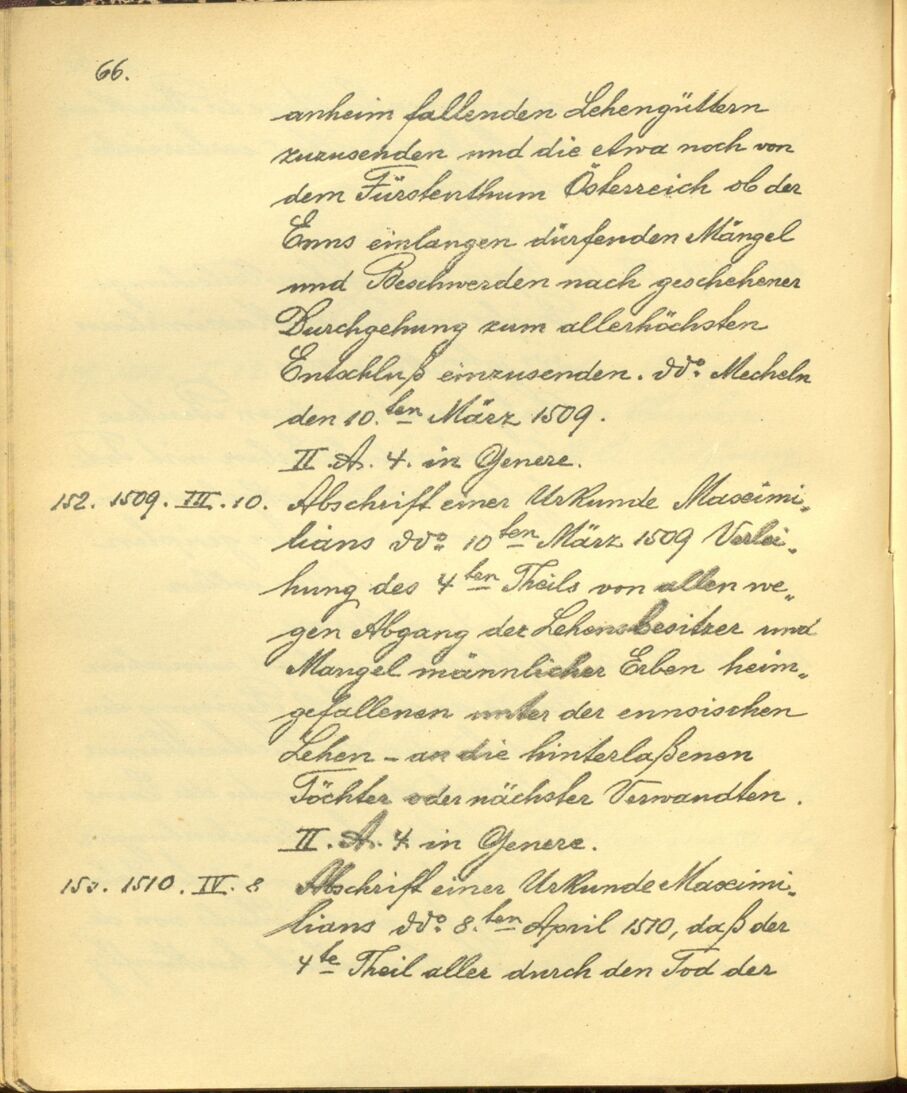 66.
anheim fallenden Lehengüttern
zuzusenden und die etwa noch von
dem Fürstenthum Österreich ob der
Enns einlangen dürfenden Mängel
und Beschwerden nach geschehener
Durchgehung zum allerhöchsten
Entschluß einzusenden. ddo: Mecheln
den 10.ten März 1509.
II. A. 4. in Genere.
152. 1509. III. 10. Abschrift einer Urkunde Maximi„
lians ddo: 10ten März 1509 Verlei„
hung des 4ten Theils von allen we„
gen Abgang der Lehensbesitzer und
Mangel männlicher Erben heim„
gefallenen unter der ennsischen
Lehen – an die hinterlaßenen
Töchter oder nächster Verwandten.
II. A. 4 in Genere.
153. 1510. IV. 8 Abschrift einer Urkunde Maximi„
lians ddo: 8.ten April 1510, daß der
4te Theil aller durch den Tod der